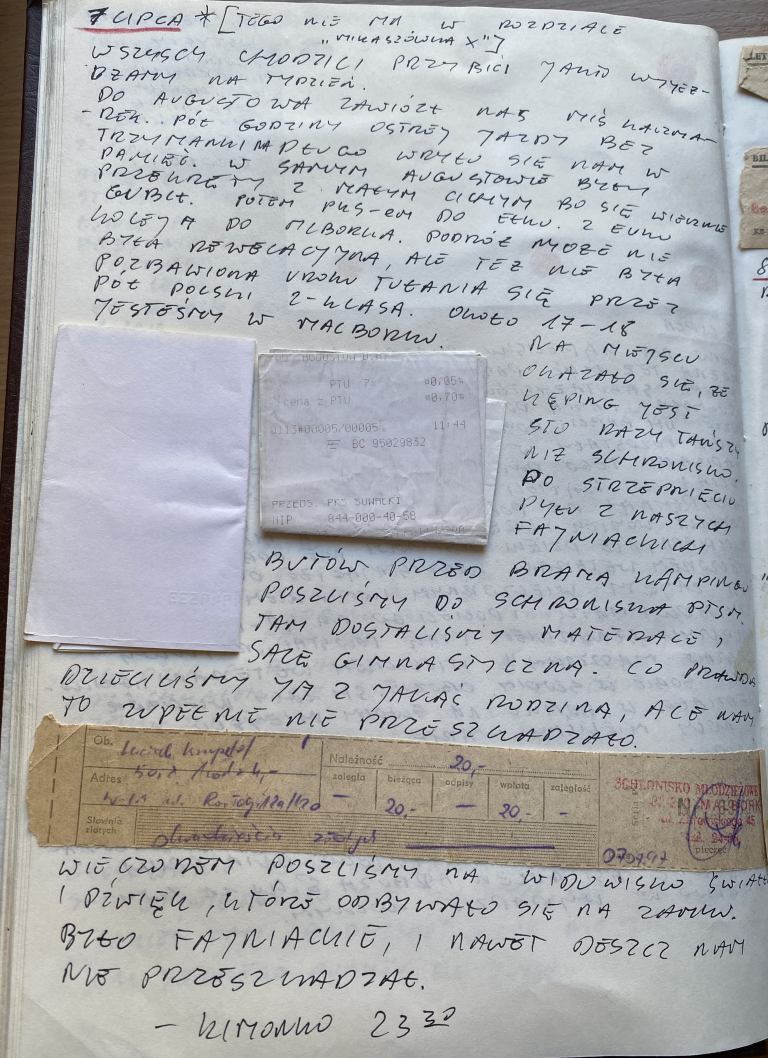 7 LIPCA * [TEGO NIE MA W ROZDZIALE
"MIKASZÓWKA X"]
WSZYSCY CHODZILI PRZYBICI JAKO WYJEŻ-
DŻAMY NA TYDZIEŃ.
DO AUGUSTOWA ZAWIÓZŁ NAS MIŚ KACZMA-
REK. PÓŁ GODZINY OSTREJ JAZDY BEZ
TRZYMANKI NA DŁUGO WRYŁO SIĘ NAM W
PAMIĘĆ. W SAMYM AUGUSTOWIE BYŁY
PRZEKRĘTY Z MAŁYM CICHYM BO SIĘ WIECZNIE
GUBIŁ. POTEM PKS-EM DO EŁKU. Z EŁKU
KOLEJĄ DO MLBORKA. PODRÓŻ MOŻE NIE
BYŁA REWELACYJNA, ALE TEŻ NIE BYŁA
POZBAWIONA UROKU TUŁANIA SIĘ PRZEZ
PÓŁ POLSKI 2-KLASĄ. OKOŁO 17-18
JESTEŚMY W MALBORKU.
NA MIEJSCU
OKAZAŁO SIĘ, ŻE
KĘPING JEST
STO RAZY TAŃSZY
NIŻ SCHRONISKO.
PO STRZEPNIĘCIU
PYŁU Z NASZYCH
FAJNIACKICH
PTU 7% *0,05*
cena z PTU *0,70*
0113#00005/00005 11:44
BC 95029832
PRZEDS. PKS SUWAŁKI
NIP 844-000-40-58
BUTÓW PRZED BRAMĄ KAMPINGU
POSZLIŚMY DO SCHRONISKA PTSM.
TAM DOSTALIŚMY MATERACE I
SALĘ GIMNASTYCZNĄ. CO PRAWDA
DZIELILIŚMY JĄ Z JAKĄŚ RODZINĄ, ALE NAM
TO ZUPEŁNIE NIE PRZESZKADZAŁO.
Ob.
Należność 20,-
Adres
zaległa bieżąca odpisy wpłata zaległość
- 20,- - 20,- -
Słownie złotych dwadzieścia złotych
SCHRONISKO MŁODZIEŻOWE
MALBORK
pieczęć
07.07.97
WIECZOREM POSZLIŚMY NA WIDOWISKO ŚWIATŁO
I DŹWIĘK, KTÓRE ODBYWAŁO SIĘ NA ZAMKU.
BYŁO FAJNIACKIE, I NAWET DESZCZ NAM
NIE PRZESZKADZAŁ.
- KIMONKO 23 30